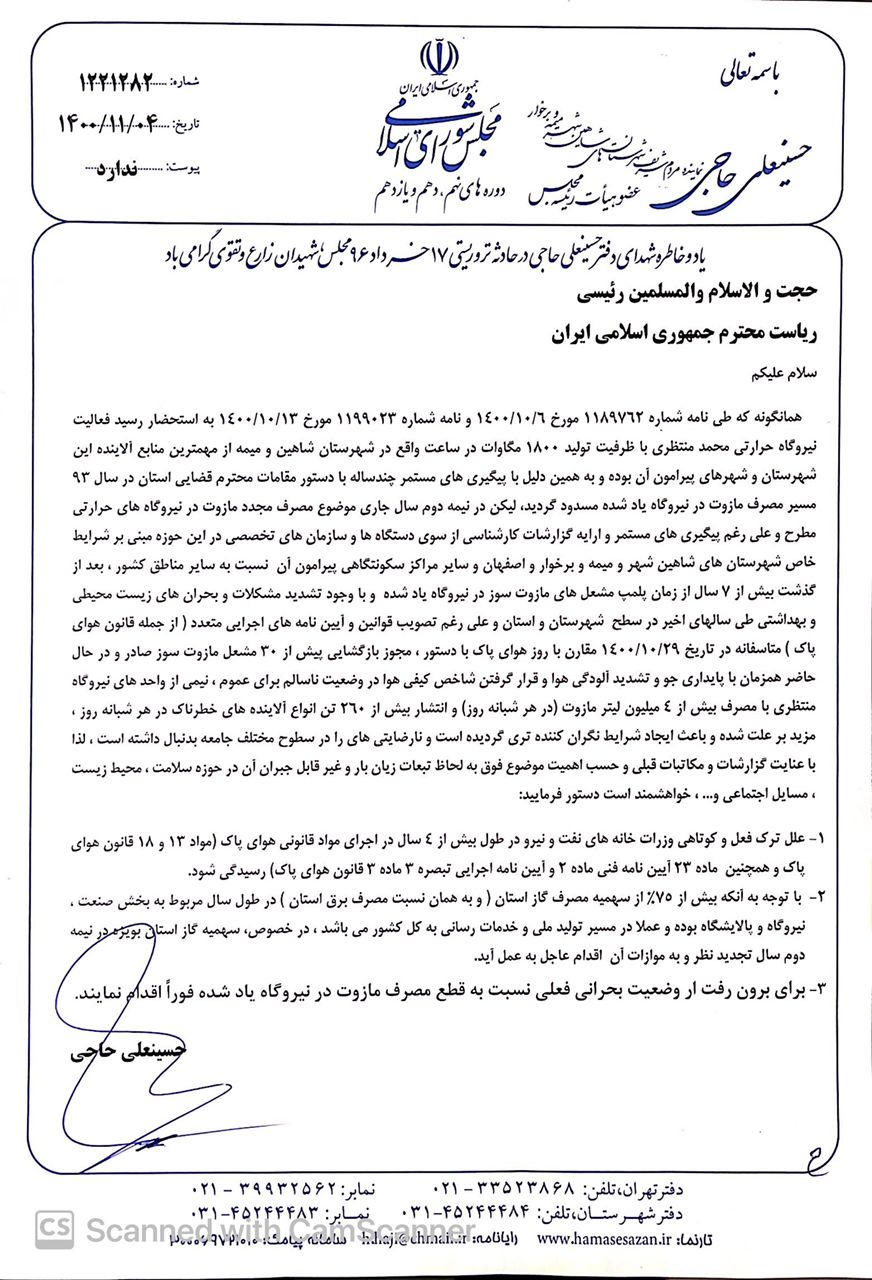 باسمه تعالی
حسینعلی حاجی
نماینده مردم شریف شهرستان های شاهین شهر و میمه و برخوار
عضو هیأت رئیسه مجلس
جمهوری اسلامی ایران
مجلس شورای اسلامی
دوره های نهم، دهم و یازدهم
شماره: ۱۲۲۱۲۸۲
تاریخ: ۱۴۰۰/۱۱/۰۴
پیوست: ندارد
یاد و خاطره شهدای دفتر حسینعلی حاجی در حادثه تروریستی ۱۷ خرداد ۹۶ مجلس، شهیدان زارع و تقوی گرامی باد
حجت و الاسلام والمسلمین رئیسی
ریاست محترم جمهوری اسلامی ایران
سلام علیکم
همانگونه که طی نامه شماره ۱۱۸۹۷۶۲ مورخ ۱۴۰۰/۱۰/۶ و نامه شماره ۱۱۹۹۰۲۳ مورخ ۱۴۰۰/۱۰/۱۳ به استحضار رسید فعالیت
نیروگاه حرارتی محمد منتظری با ظرفیت تولید ۱۸۰۰ مگاوات در ساعت واقع در شهرستان شاهین و میمه از مهمترین منابع آلاینده این
شهرستان و شهرهای پیرامون آن بوده و به همین دلیل با پیگیری های مستمر چندساله با دستور مقامات محترم قضایی استان در سال ۹۳
مسیر مصرف مازوت در نیروگاه یاد شده مسدود گردید، لیکن در نیمه دوم سال جاری موضوع مصرف مجدد مازوت در نیروگاه های حرارتی
مطرح و علی رغم پیگیری های مستمر و ارایه گزارشات کارشناسی از سوی دستگاه ها و سازمان های تخصصی در این حوزه مبنی بر شرایط
خاص شهرستان های شاهین شهر و میمه و برخوار و اصفهان و سایر مراکز سکونتگاهی پیرامون آن نسبت به سایر مناطق کشور ، بعد از
گذشت بیش از ۷ سال از زمان پلمپ مشعل های مازوت سوز در نیروگاه یاد شده و با وجود تشدید مشکلات و بحران های زیست محیطی
و بهداشتی طی سالهای اخیر در سطح شهرستان و استان و علی رغم تصویب قوانین و آیین نامه های اجرایی متعدد ( از جمله قانون هوای
پاک ) متاسفانه در تاریخ ۱۴۰۰/۱۰/۲۹ مقارن با روز هوای پاک با دستور ، مجوز بازگشایی پیش از ۳۰ مشعل مازوت سوز صادر و در حال
حاضر همزمان با پایداری جو و تشدید آلودگی هوا و قرار گرفتن شاخص کیفی هوا در وضعیت ناسالم برای عموم ، نیمی از واحد های نیروگاه
منتظری با مصرف بیش از ٤ میلیون لیتر مازوت (در هر شبانه روز) و انتشار بیش از ۲۶۰ تن انواع آلاینده های خطرناک در هر شبانه روز ،
مزید بر علت شده و باعث ایجاد شرایط نگران کننده تری گردیده است و نارضایتی های را در سطوح مختلف جامعه بدنبال داشته است ، لذا
با عنایت گزارشات و مکاتبات قبلی و حسب اهمیت موضوع فوق به لحاظ تبعات زیان بار و غیر قابل جبران آن در حوزه سلامت ، محیط زیست
، مسایل اجتماعی و... ، خواهشمند است دستور فرمایید:
۱- علل ترک فعل و کوتاهی وزرات خانه های نفت و نیرو در طول بیش از ٤ سال در اجرای مواد قانونی هوای پاک (مواد ۱۳ و ۱۸ قانون هوای
پاک و همچنین ماده ۲۳ آیین نامه فنی ماده ۲ و آیین نامه اجرایی تبصره ۳ ماده ۳ قانون هوای پاک) رسیدگی شود.
۲- با توجه به آنکه بیش از ۷۵٪ از سهمیه مصرف گاز استان ( و به همان نسبت مصرف برق استان ) در طول سال مربوط به بخش صنعت ،
نیروگاه و پالایشگاه بوده و عملا در مسیر تولید ملی و خدمات رسانی به کل کشور می باشد ، در خصوص، سهمیه گاز استان بویژه در نیمه
دوم سال تجدید نظر و به موازات آن اقدام عاجل به عمل آید.
۳- برای برون رفت از وضعیت بحرانی فعلی نسبت به قطع مصرف مازوت در نیروگاه یاد شده فوراً اقدام نمایند.
حسینعلی حاجی
دفتر تهران،تلفن: ۳۳۵۲۳۸۶۸ - ۰۲۱ نمابر: ۳۹۹۳۲۵۶۲ - ۰۲۱
دفتر شهرستان،تلفن: ۴۵۲۴۴۴۸۴-۰۳۱ نمابر: ۴۵۲۴۴۴۸۳-۰۳۱
تارنما: www.hamasesazan.ir رایانامه: h.haji@chmail.ir سامانه پیامک:
CS Scanned with CamScanner